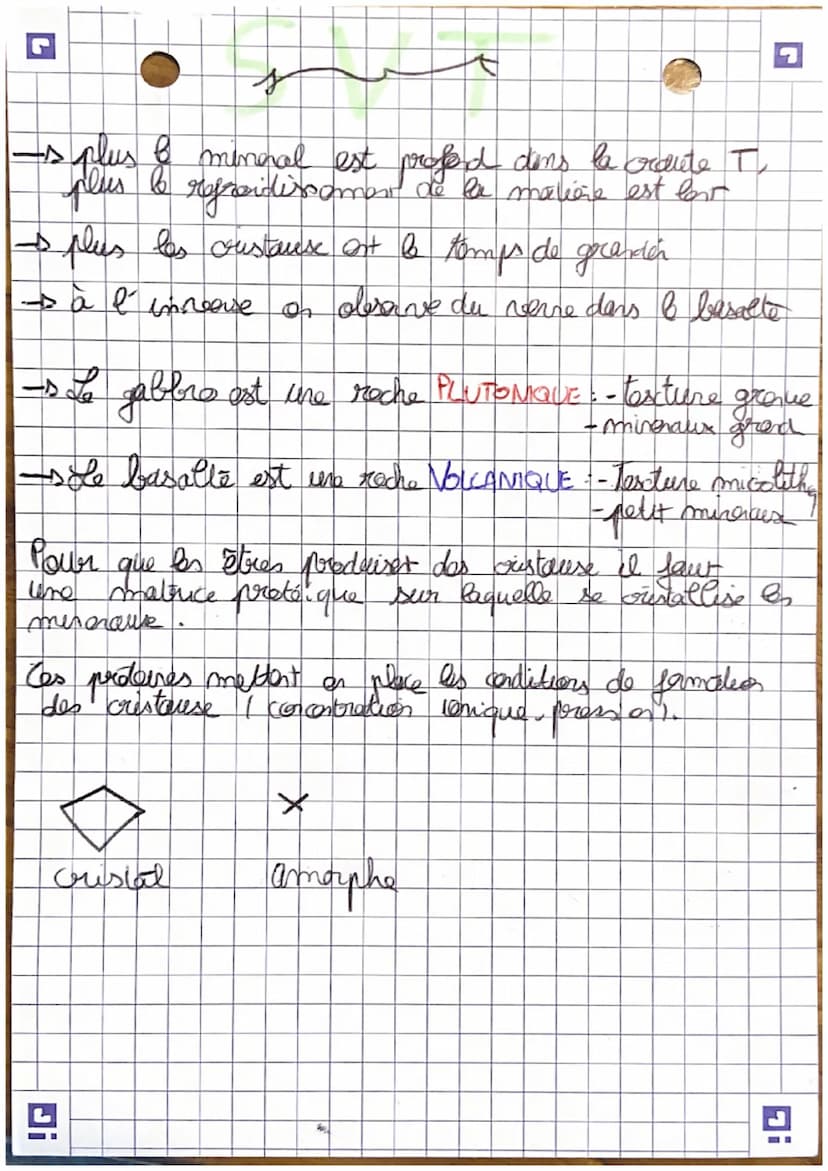 SVT
→ plus le minéral est profond dans la croûte T,
plus le refroidissement de la matière est lent
→ plus les cristaux ont le temps de grandir
→ à l'inverse on observe du verre dans le basalte
→ Le gabbro est une roche PLUTONIQUE : - texture grenue
- mineraux grand
→ Le basalte est une roche VOLCANIQUE : - Texture micolith
- petit mineraux
Pour que les êtres produisent des cristaux il faut
une matrice protéique sur laquelle se cristallise les
mineraux.
Ces protéines mettent en place les conditions de formation
des cristaux (concentration ionique, pression).
cristal amorphe